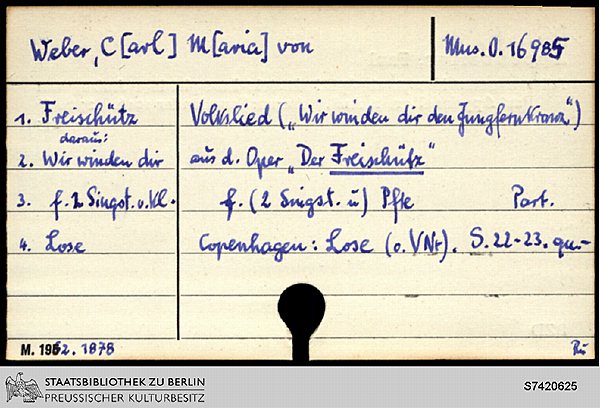 Weber, C[arl] M[aria] von
Mus. O. 16985
1. Freischütz
daraus:
2. Wir winden dir
3. f. 2 Singst. u. Kl.
4. Lose
Volkslied („Wir winden dir den Jungfernkranz“)
aus d. Oper „Der Freischütz“
f. (2 Singst. u) Pfte Part.
Copenhagen: Lose (o. VNr). S. 22-23. qu.-
M. 1962. 1878
Rü
STAATSBIBLIOTHEK ZU BERLIN
PREUSSISCHER KULTURBESITZ
S7420625